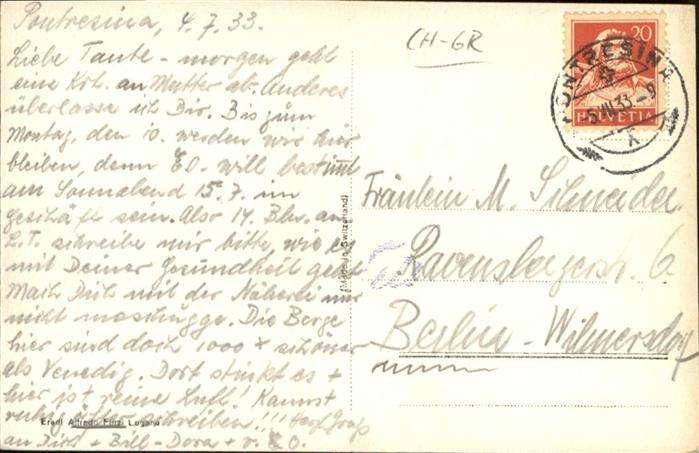 Pontresina, 4.7.33.
Liebe Tante – morgen geht
eine Krt. an Mutter ab. Anderes
überlasse ich Dir. Bis zum
Montag, den 10. werden wir hier
bleiben, denn EO. will bestimmt
am Sonnabend 15.7. im
Geschäft sein. Also 14. an
schreibe mir bitte, wie es
mit Deiner Gesundheit geht.
Mach Dich mit der Näherei nur
nicht meschugge. Die Berge
hier sind doch 1000 x schöner
als Venedig. Dort stinkt es +
hier ist reine Luft! Kannst
ruhig öfter schreiben!!! Herzl. Grß
an Dich + Bill - Dora + v. EO.
Eredi Alfredo Finzi Lugano
(Made in Switzerland)
CH-GR
20
HELVETIA
PONTRESINA
5.VII.33.-9
Fräulein M. Schneider
Ravensbergerstr. 6
Berlin-Wilmersdorf